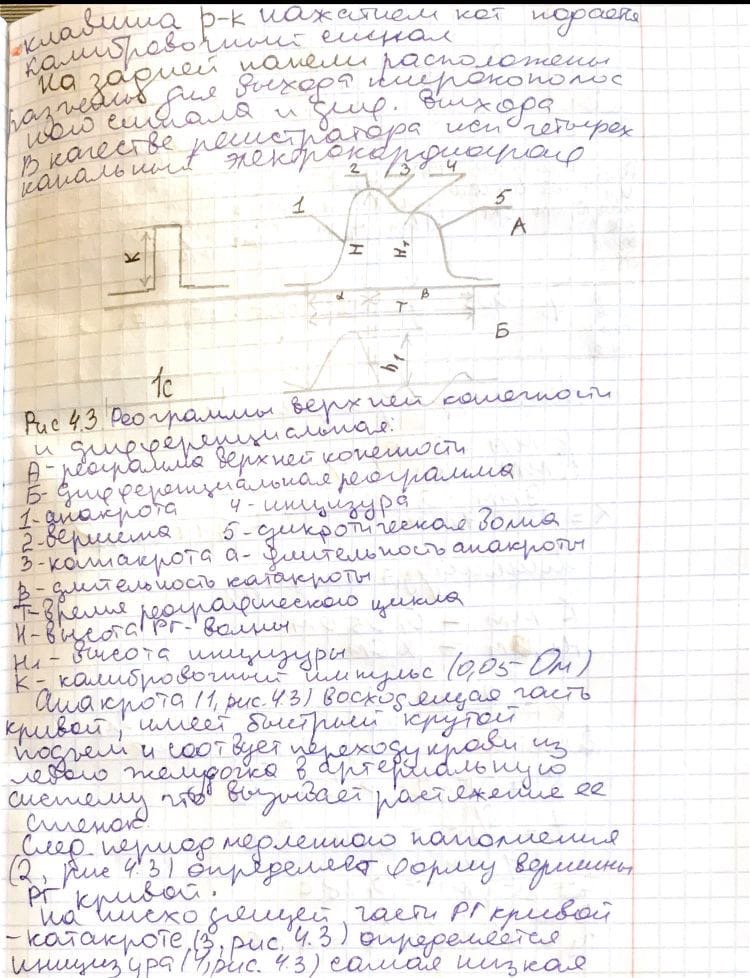 клавиша р-к нажатием кот подается
калибровочный сигнал
На задней панели расположены
разъемы для выхода широкополос
ного сигнала и диф. выхода
В качестве регистратора исп четырех
канальный электрокардиограф
2 3 4
1 5
А
К
H H₁
a в
T
Б
h₁
1с
Рис 4.3 Реограммы верхней конечности
и дифференциальная:
А-реограмма верхней конечности
Б-дифференциальная реограмма
1-анакрота 4-инцизура
2-вершина 5-дикротическая волна
3-катакрота а-длительность анакроты
в-длительность катакроты
Т-время реографического цикла
Н-высота РГ-волны
Н₁-высота инцизуры
К-калибровочный импульс (0,05-Ом)
Анакрота (1, рис. 4.3) восходящая часть
кривой, имеет быстрый крутой
подъем и соотвует переходу крови из
левого желудочка в артериальную
систему что вызывает растяжение ее
стенок.
След период медленного наполнения
(2, рис 4.3) определяет форму вершины
РГ кривой.
На нисходящей части РГ кривой
-катакроте (3, рис. 4.3) определяется
инцизура (4, рис. 4.3) самая низкая